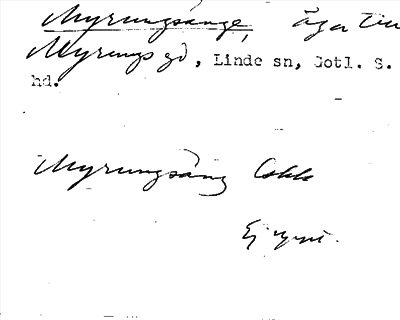 Myrungsänge, äga till
Myrungs gd, Linde sn, Gotl. S.
hd.
Myrungsäng
Ej